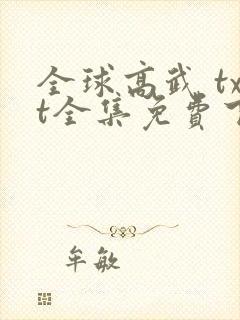 全球高武 tx
t全集免費下
牟敏